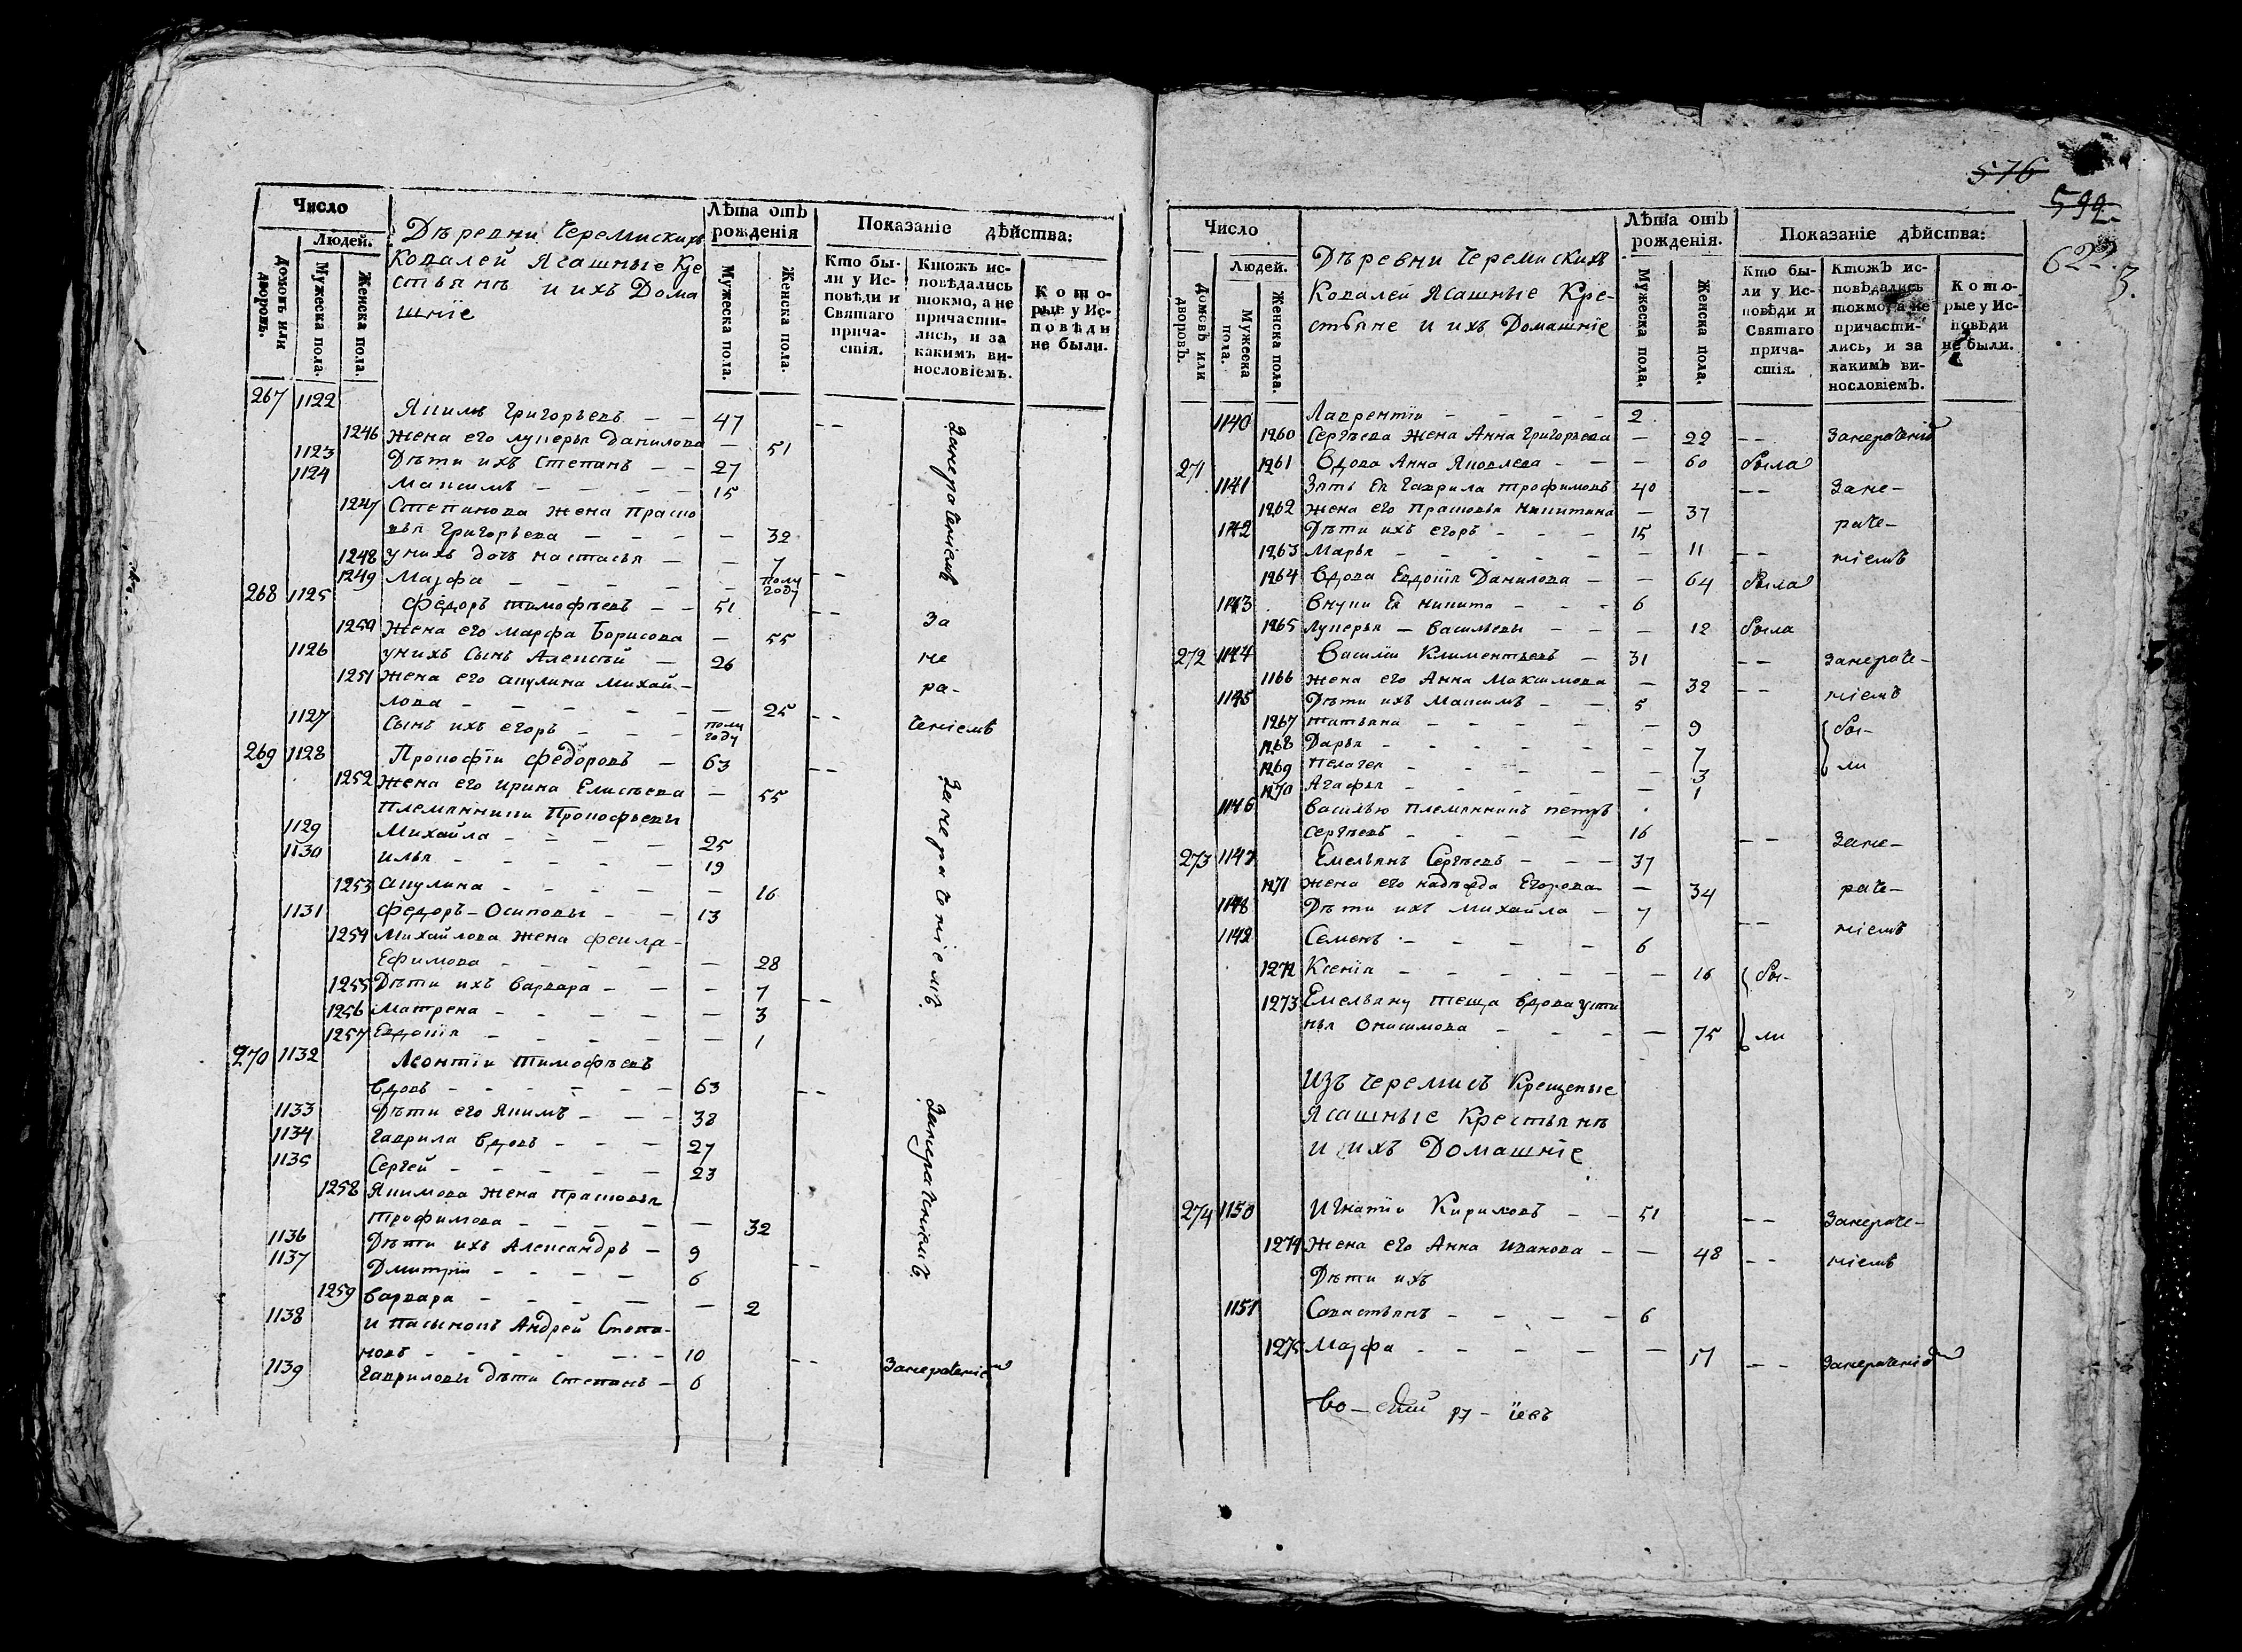 Число
Людей.
Домовъ или дворовъ.
Мужеска пола.
Женска пола.
Деревни Черемискихъ
Ковалей Ясашные Кре
стьянѣ и ихъ Дома
шнїе
Лѣта отъ рожденія
Мужеска пола.
Женска пола.
Показаніе дѣйства:
Кто бы-
ли у Ис-
повѣди и
Святаго
прича-
стія.
Ктожъ ис-
повѣдались
токмо, а не
причасти-
лись, и за
какимъ ви-
нословіемъ.
Кото-
рые у Ис-
повѣди
не были.
267 1122 Якимъ Григорьевъ - - 47 - -
1246 Жена его Лукерья Данилова - 51
1123 Дѣти ихъ Степанъ - - 27
1124 Максимъ - - - - 15
1247 Степанова жена Праско
вья Григорьева - - - - - 32
1248 у нихъ дочь настасья - - 7
1249 Марфа - - - - - полу году - -
занераченіемъ
268 1125 Федоръ тимофѣевъ - - 51 - - За
1250 Жена его марфа Борисова - 55
1126 у нихъ Сынъ Алексѣй - 26 не
1251 Жена его акулина Михай-
ра-
лова - - - - - - 25 - -
1127 Сынъ ихъ егоръ - - - полу году ченіемъ
269 1128 Прокофїи Федоровъ - 63 - -
1252 Жена его ирина Елисѣева - 55
племянники Прокофьевы
1129 Михайла - - - - 25
1130 илья - - - - - 19
1253 акулина - - - - - 16
1131 федоръ - Осиповы - - 13
1254 Михайлова жена фекла -
Ефимова - - - - - - 28
1255 Дѣти ихъ варвара - - - 7
1256 Матрена - - - - - 3 - -
1257 Евдокїя - - - - - 1
занераченіемъ
270 1132 Леонтїи тимофѣевъ
вдовъ - - - - - - 63 - -
1133 Дѣти его Якимъ - - - 38
1134 гаврила вдовъ - - - 27
1135 Сергей - - - - - 23
1258 Якимова жена прасковья
трофимова - - - - - 32
1136 Дѣти ихъ Александръ - 9
1137 Дмитрїи - - - - 6 - -
1259 варвара - - - - - 2
занераченіемъ
1138 и пасынокъ Андрей Степа-
новъ - - - - - - 10
1139 гавриловы дѣти Степанъ - 6 - - Занераченіем
576
599
622.
3.
Число
Людей.
Домовъ или дворовъ.
Мужеска пола.
Женска пола.
Деревни Черемискихъ
Ковалей Ясашные Кре-
стьяне и ихъ Домашнїе
Лѣта отъ рожденія.
Мужеска пола.
Женска пола.
Показаніе дѣйства:
Кто бы-
ли у Ис-
повѣди и
Святаго
прича-
стія.
Ктожъ ис-
повѣдались
токмо, а не
причасти-
лись, и за
какимъ ви-
нословіемъ.
Кото-
рые у Ис-
повѣди
не были.
1140 Лаврентїи - - - - 2
1260 Сергѣева жена Анна григорьева - 22 - - Занераченіем
271 1261 Вдова Анна Яковлева - - - 60 была
1141 Зять Ея гаврила трофимовъ 40 - - Зане-
1262 жена его прасковья никитина - 37
1142 Дѣти ихъ егоръ - - - 15 раче-
1263 Марья - - - - - - 11 - -
ніемъ
1264 Вдова Евдокїя Данилова - - 64 была
1143 внуки Ея никита - - - 6
1265 лукерья - васильевы - - - 12 была
272 1144 Василїи Климентьевъ - 31 - - занераче-
1166 жена его Анна Максимова - 32 - -
ніемъ
1145 Дѣти ихъ Максимъ - - 5
1267 татьяна - - - - - 9 бы-
1268 Дарья - - - - - - 7
1269 пелагея - - - - - 3 ли
1270 Агафья - - - - - 1
1146 василью племянникъ петръ
Сергѣевъ - - - - 16 - - Зане-
273 1147 Емельянъ Сергѣевъ - - - 37
1271 жена его надѣжда Егорова - 34 раче-
1148 Дѣти ихъ михайла - 7 - -
1149 Семенъ - - - - 6 ніемъ
1272 Ксенїя - - - - - - 16 бы-
1273 Емельяну теща вдова усти
нья Онисимова - - - - 75 ли
Изъ черемисъ Крещеные
Ясашные Крестьянѣ
и ихъ Домашнїе
274 1150 Игнатїи Кириловъ - - 51 - - Занераче-
1274 Жена его Анна Иванова - - 48 - - ніемъ
Дѣти ихъ
1151 Савастьянъ - - - - 6
1275 Марфа - - - - - 17 - - Занераченіем